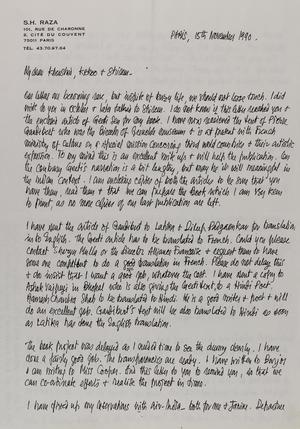 S.H. RAZA
101, RUE DE CHARONNE
2, CITÉ DU COUVENT
75011 PARIS
TÉL. 43.70.97.64
PARIS, 15th November 1990.
My dear
our lives are becoming rare, but inspite of busy life, we should not loose touch. I did
write to you in October & later to Shireen. I do not know if this letter reached you &
the enclosed article of Geeti Sen for my book. I have now received the text of Pierre
Gaudibert who was the Director of Grenoble museum & is at present with French
ministry of culture on a special mission concerning third world countries & their artistic
expression. To my mind this is an excellent write up & will help the publication. On
the contrary Geeti's narration is a bit lengthy, but may be it will meaningful in
the Indian context. I am enclosing copies of both the articles to be sure that you
have them, read them & that we can prepare the Book, which I am very keen
to print, as no more copies of our last publication are left.
I have sent the article of Gaudibert to Lalita & Dilip for translation
into English. The Geeti article has to be translated to French. Could you please
contact or the Director Alliance Française & request them to have
some one competent to do a good translation in French. Please do not delay this
& do insist that I want a good job, whatever the cost. I have sent a copy to
Ashok Vajpeyi in Bhopal who is also giving the Geeti text, to a Hindi Poet,
Shah to be translated to Hindi. He is a good writer & poet & will
do an excellent job. Gaudibert's text will be also translated to Hindi as soon
as Lalita has done the English translation.
The book project was delayed as I waited time to see the dummy closely. I have
done a fairly good job. The transparencies are ready. I have written to
I am writing to Miss Cooper. But this letter to you to remind you, so that we
can co-ordinate efforts & realise the project in time.
I have fixed up my reservations with Air-India both for me & Janine. Departure